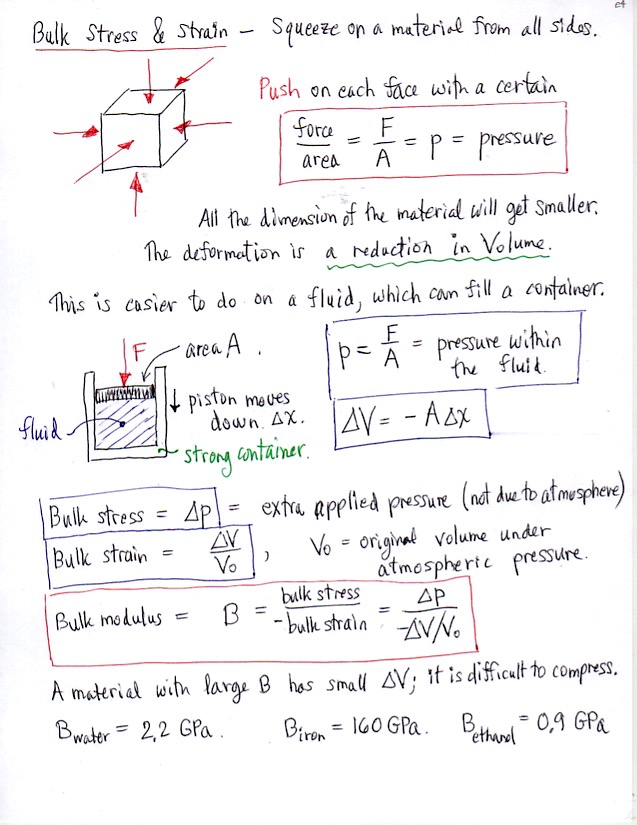 Bulk Stress & Strain – Squeeze on a material from all sides.
Push on each face with a certain
force/area = F/A = p = pressure
All the dimension of the material will get smaller.
The deformation is a reduction in Volume.
This is easier to do on a fluid, which can fill a container.
F
area A.
p = F/A = pressure within
the fluid.
↓ piston moves
down Δx.
fluid
strong container.
ΔV = - A Δx
Bulk stress = Δp = extra applied pressure (not due to atmosphere)
Bulk strain = ΔV/V₀ , V₀ = original volume under
atmospheric pressure.
Bulk modulus = B = bulk stress/-bulk strain = Δp/-ΔV/V₀
A material with large B has small ΔV; it is difficult to compress.
Bwater = 2,2 GPa. Biron = 160 GPa. Bethanol = 0,9 GPa